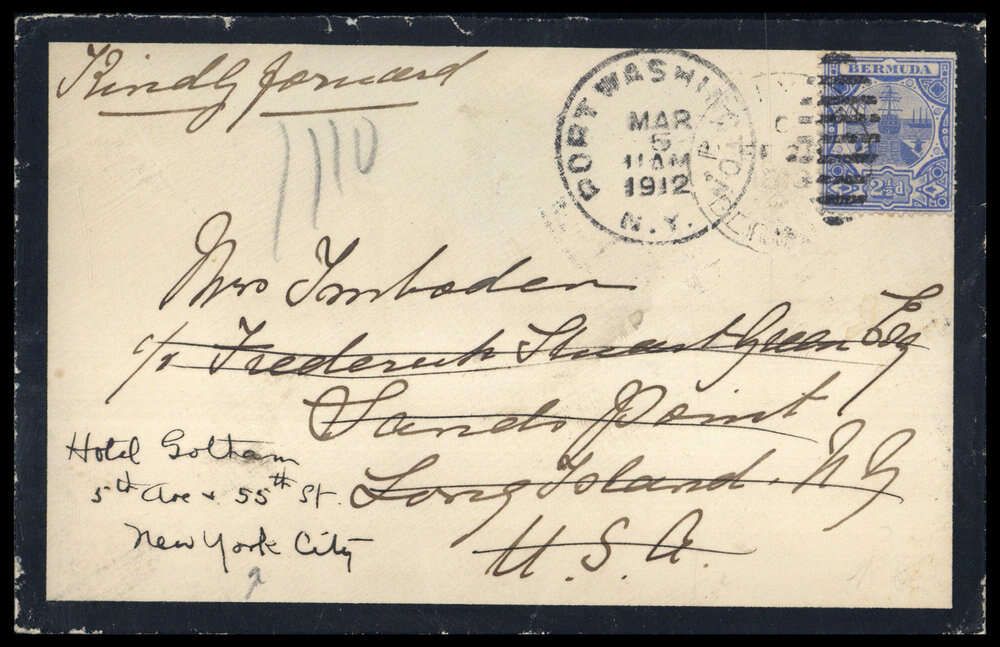 Kindly forward
1110
PORT WASHINGTON
MAR
5
11 AM
1912
N.Y.
BERMUDA
2½d
Mrs Imboden
c/o Frederick Stuart Green Esq
Sands Point
Long Island. N Y
U. S. A.
Hotel Gotham
5th Ave + 55th St.
New York City